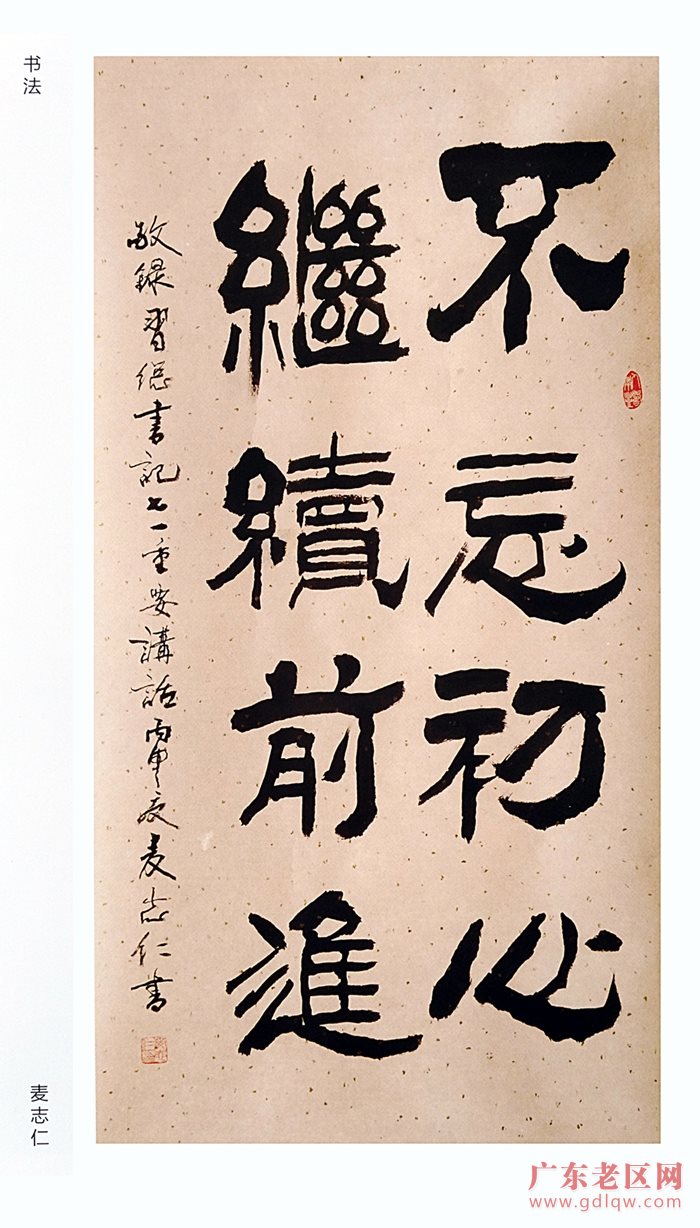 书法
不忘初心
繼續前進
敬録習總書記七一重要講話丙申夏麦志仁書
麦志仁
广东老区网
www.gdlqw.com